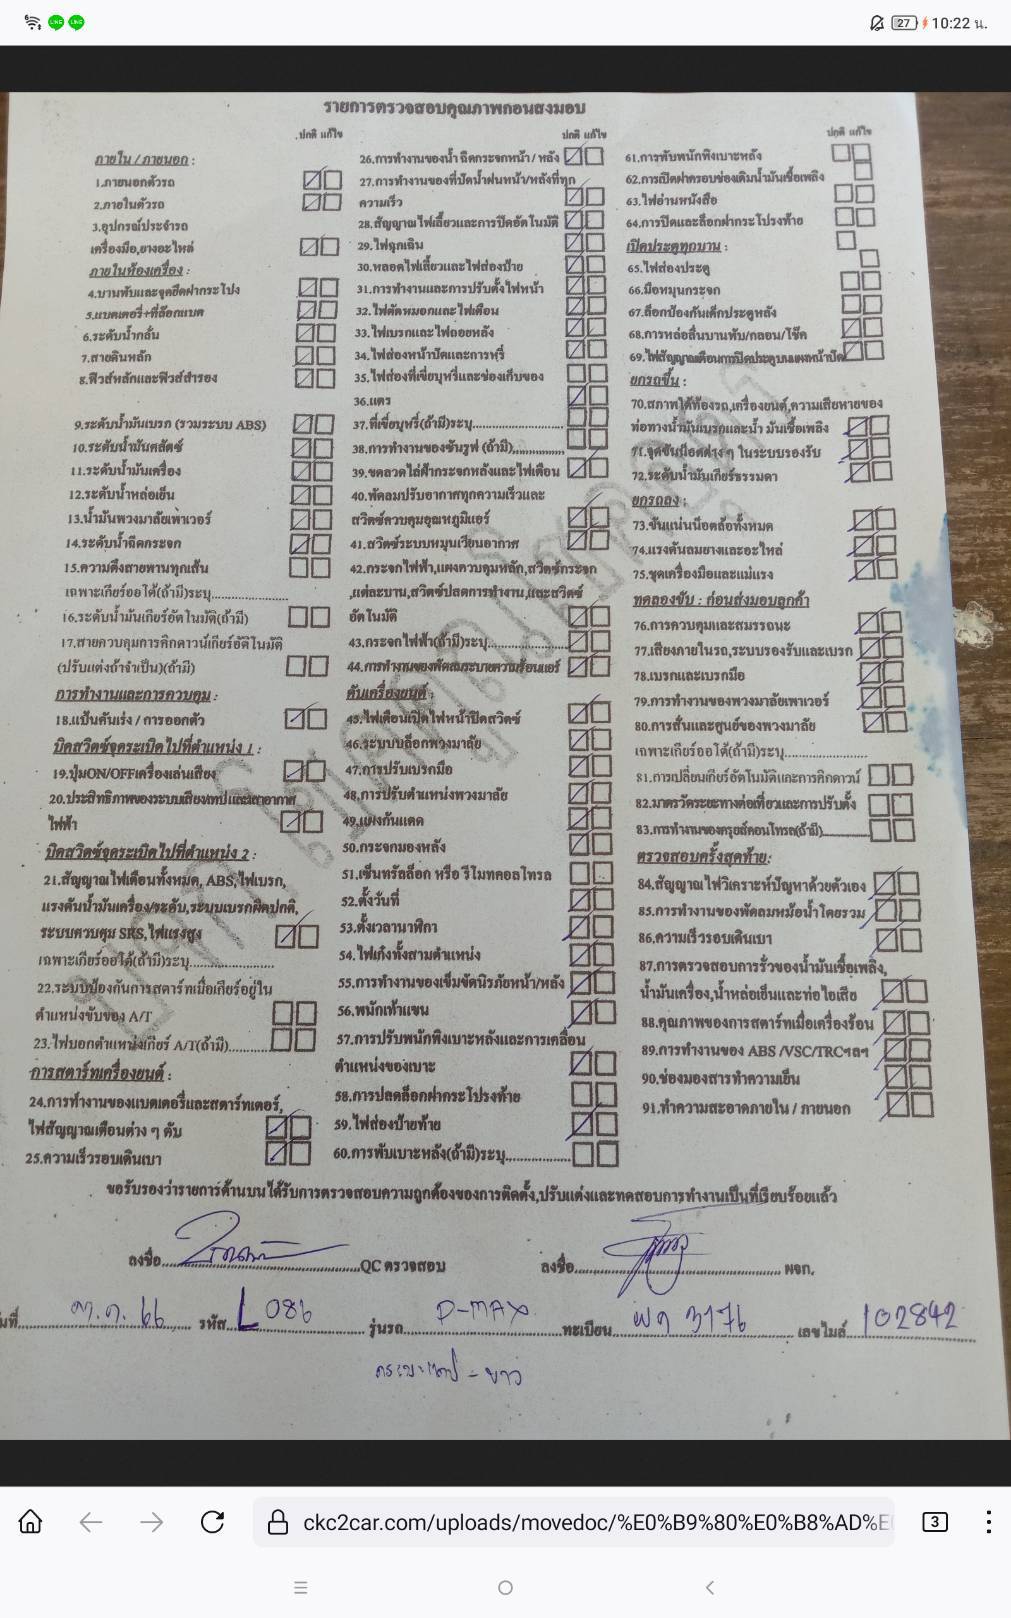 27 10:22 น.
รายการตรวจสอบคุณภาพก่อนส่งมอบ
ปกติ แก้ไข
ภายใน / ภายนอก :
1.ภายนอกตัวรถ
2.ภายในตัวรถ
3.อุปกรณ์ประจำรถ
เครื่องมือ,ยางอะไหล่
ภายในห้องเครื่อง :
4.บานพับและจุดยึดฝากระโปง
5.แบตเตอรี่+ที่ล็อกแบต
6.ระดับน้ำกลั่น
7.สายดินหลัก
8.ฟิวส์หลักและฟิวส์สำรอง
9.ระดับน้ำมันเบรก (รวมระบบ ABS)
10.ระดับน้ำมันคลัตช์
11.ระดับน้ำมันเครื่อง
12.ระดับน้ำหล่อเย็น
13.น้ำมันพวงมาลัยเพาเวอร์
14.ระดับน้ำฉีดกระจก
15.ความตึงสายพานทุกเส้น
เฉพาะเกียร์ออโต้(ถ้ามี)ระบุ
16.ระดับน้ำมันเกียร์อัตโนมัติ(ถ้ามี)
17.สายควบคุมการคิกดาวน์เกียร์อัติโนมัติ
(ปรับแต่งถ้าจำเป็น)(ถ้ามี)
การทำงานและการควบคุม :
18.แป้นคันเร่ง / การออกตัว
บิดสวิตซ์จุดระเบิดไปที่ตำแหน่ง 1 :
19.ปุ่มON/OFFเครื่องเล่นเสียง
20.ประสิทธิภาพของระบบเสียง/เทปและเสาอากาศ
ไฟฟ้า
บิดสวิตซ์จุดระเบิดไปที่ตำแหน่ง 2 :
21.สัญญาณไฟเตือนทั้งหมด, ABS,ไฟเบรก,
แรงดันน้ำมันเครื่อง/ระดับ,ระบบเบรกผิดปกติ,
ระบบควบคุม SRS,ไฟแรงสูง
เฉพาะเกียร์ออโต้(ถ้ามี)ระบุ
22.ระบบป้องกันการสตาร์ทเมื่อเกียร์อยู่ใน
ตำแหน่งขับของ A/T
23.ไฟบอกตำแหน่งเกียร์ A/T(ถ้ามี)
การสตาร์ทเครื่องยนต์ :
24.การทำงานของแบตเตอรี่และสตาร์ทเตอร์,
ไฟสัญญาณเตือนต่าง ๆ ดับ
25.ความเร็วรอบเดินเบา
ปกติ แก้ไข
26.การทำงานของน้ำ ฉีดกระจกหน้า / หลัง
27.การทำงานของที่ปัดน้ำฝนหน้า/หลังที่ทุก
ความเร็ว
28.สัญญาณไฟเลี้ยวและการปิดอัตโนมัติ
29.ไฟฉุกเฉิน
30.หลอดไฟเลี้ยวและไฟส่องป้าย
31.การทำงานและการปรับตั้งไฟหน้า
32.ไฟตัดหมอกและไฟเตือน
33.ไฟเบรกและไฟถอยหลัง
34.ไฟส่องหน้าปัดและการหรี่
35.ไฟส่องที่เขี่ยบุหรี่และช่องเก็บของ
36.แตร
37.ที่เขี่ยบุหรี่(ถ้ามี)ระบุ
38.การทำงานของซันรูฟ (ถ้ามี)
39.ขดลวดไล่ฝ้ากระจกหลังและไฟเตือน
40.พัดลมปรับอากาศทุกความเร็วและ
สวิตซ์ควบคุมอุณหภูมิแอร์
41.สวิตซ์ระบบหมุนเวียนอากาศ
42.กระจกไฟฟ้า,แผงควบคุมหลัก,สวิตซ์กระจก
,แต่ละบาน,สวิตซ์ปลดการทำงาน,และสวิตซ์
อัตโนมัติ
43.กระจกไฟฟ้า(ถ้ามี)ระบุ
44.การทำงานของพัดลมระบายความร้อนแอร์
ดับเครื่องยนต์ :
45.ไฟเตือนเปิดไฟหน้าปิดสวิตซ์
46.ระบบบล็อกพวงมาลัย
47.การปรับเบรกมือ
48.การปรับตำแหน่งพวงมาลัย
49.แผงกันแดด
50.กระจกมองหลัง
51.เซ็นทรัลล็อก หรือ รีโมทคอลโทรล
52.ตั้งวันที่
53.ตั้งเวลานาฬิกา
54.ไฟเก๋งทั้งสามตำแหน่ง
55.การทำงานของเข็มขัดนิรภัยหน้า/หลัง
56.พนักเท้าแขน
57.การปรับพนักพิงเบาะหลังและการเคลื่อน
ตำแหน่งของเบาะ
58.การปลดล็อกฝากระโปรงท้าย
59.ไฟส่องป้ายท้าย
60.การพับเบาะหลัง(ถ้ามี)ระบุ
ปกติ แก้ไข
61.การพับพนักพิงเบาะหลัง
62.การเปิดฝาครอบช่องเติมน้ำมันเชื้อเพลิง
63.ไฟอ่านหนังสือ
64.การปิดและล็อกฝากระโปรงท้าย
เปิดประตูทุกบาน :
65.ไฟส่องประตู
66.มือหมุนกระจก
67.ล็อกป้องกันเด็กประตูหลัง
68.การหล่อลื่นบานพับ/กลอน/โช๊ค
69.ไฟสัญญาณเตือนการปิดประตูบนแผงหน้าปัด
ยกรถขึ้น :
70.สภาพใต้ท้องรถ,เครื่องยนต์,ความเสียหายของ
ท่อทางน้ำมันเบรกและน้ำ มันเชื้อเพลิง
71.จุดขันน็อตต่าง ๆ ในระบบรองรับ
72.ระดับน้ำมันเกียร์ธรรมดา
ยกรถลง :
73.ขันแน่นน๊อตล้อทั้งหมด
74.แรงดันลมยางและอะไหล่
75.ชุดเครื่องมือและแม่แรง
ทดลองขับ : ก่อนส่งมอบลูกค้า
76.การควบคุมและสมรรถนะ
77.เสียงภายในรถ,ระบบรองรับและเบรก
78.เบรกและเบรกมือ
79.การทำงานของพวงมาลัยเพาเวอร์
80.การสั่นและศูนย์ของพวงมาลัย
เฉพาะเกียร์ออโต้(ถ้ามี)ระบุ
81.การเปลี่ยนเกียร์อัตโนมัติและการคิกดาวน์
82.มาตรวัดระยะทางต่อเที่ยวและการปรับตั้ง
83.การทำงานของครุยส์คอนโทรล(ถ้ามี)
ตรวจสอบครั้งสุดท้าย:
84.สัญญาณไฟวิเคราะห์ปัญหาด้วยตัวเอง
85.การทำงานของพัดลมหม้อน้ำโดยรวม
86.ความเร็วรอบเดินเบา
87.การตรวจสอบการรั่วของน้ำมันเชื้อเพลิง,
น้ำมันเครื่อง,น้ำหล่อเย็นและท่อไอเสีย
88.คุณภาพของการสตาร์ทเมื่อเครื่องร้อน
89.การทำงานของ ABS /VSC/TRCฯลฯ
90.ช่องมองสารทำความเย็น
91.ทำความสะอาดภายใน / ภายนอก
ขอรับรองว่ารายการด้านบนได้รับการตรวจสอบความถูกต้องของการติดตั้ง,ปรับแต่งและทดสอบการทำงานเป็นที่เรียบร้อยแล้ว
ลงชื่อ QC ตรวจสอบ ลงชื่อ ผจก.
รหัส L 086 รุ่นรถ D-MAX ทะเบียน 3176 เลขไมล์ 102842
ckc2car.com/uploads/movedoc/%E0%B9%80%E0%B8%AD%E
3